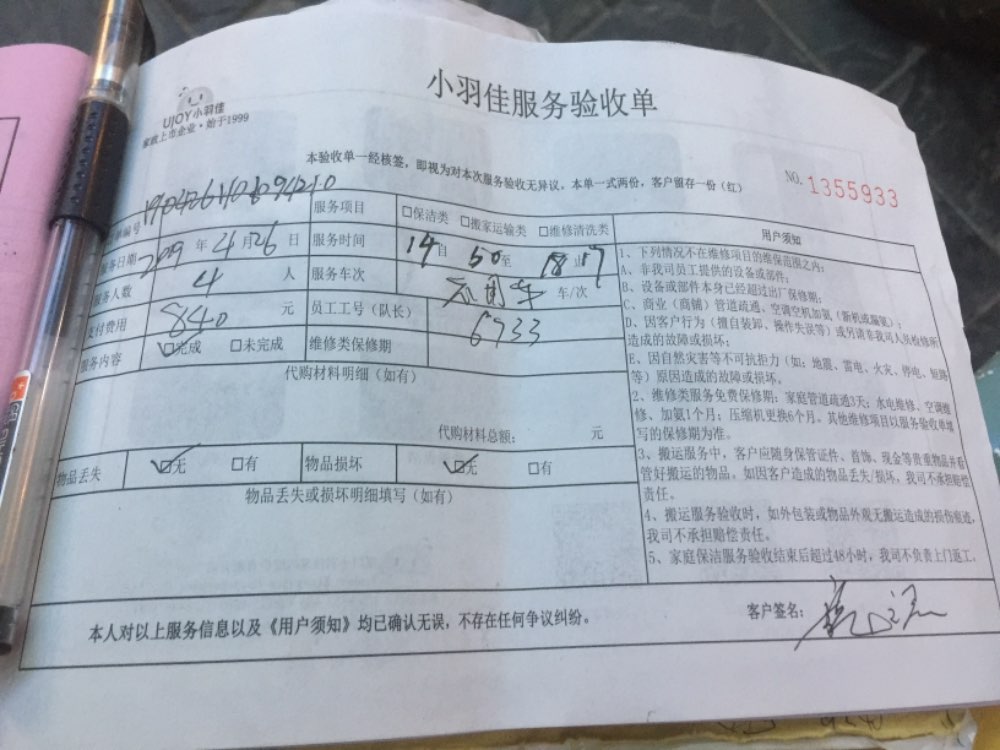 UJOY小羽佳
家政上市企业·始于1999
小羽佳服务验收单
本验收单一经核签，即视为对本次服务验收无异议，本单一式两份，客户留存一份（红）
NO. 1355933
编号
服务项目 □保洁类 □搬家运输类 □维修清洗类
服务日期 2019 年 4 月 26 日 服务时间 14 自 50 至 18 止 17
服务人数 4 人 服务车次 车/次
支付费用 840 元 员工工号（队长） 6933
服务内容 ☑完成 □未完成 维修类保修期
代购材料明细（如有）
代购材料总额： 元
物品丢失 ☑无 □有 物品损坏 ☑无 □有
物品丢失或损坏明细填写（如有）
用户须知
1、下列情况不在维修项目的维保范围之内：
A、非我司员工提供的设备或部件；
B、设备或部件本身已经超过出厂保修期；
C、商业（商铺）管道疏通、空调空机加氨（新机或漏氨）；
D、因客户行为（擅自装卸，操作失误等）或另请非我司人员检修所
造成的故障或损坏；
E、因自然灾害等不可抗拒力（如：地震、雷电、火灾、停电、短路
等）原因造成的故障或损坏。
2、维修类服务免费保修期：家庭管道疏通3天；水电维修、空调维
修、加氨1个月；压缩机更换6个月。其他维修项目以服务验收单填
写的保修期为准。
3、搬运服务中，客户应随身保管证件、首饰、现金等贵重物品并看
管好搬运的物品。如因客户造成的物品丢失/损坏，我司不承担赔偿
责任。
4、搬运服务验收时，如外包装或物品外观无搬运造成的损伤痕迹，
我司不承担赔偿责任。
5、家庭保洁服务验收结束后超过48小时，我司不负责上门返工。
本人对以上服务信息以及《用户须知》均已确认无误，不存在任何争议纠纷。
客户签名：